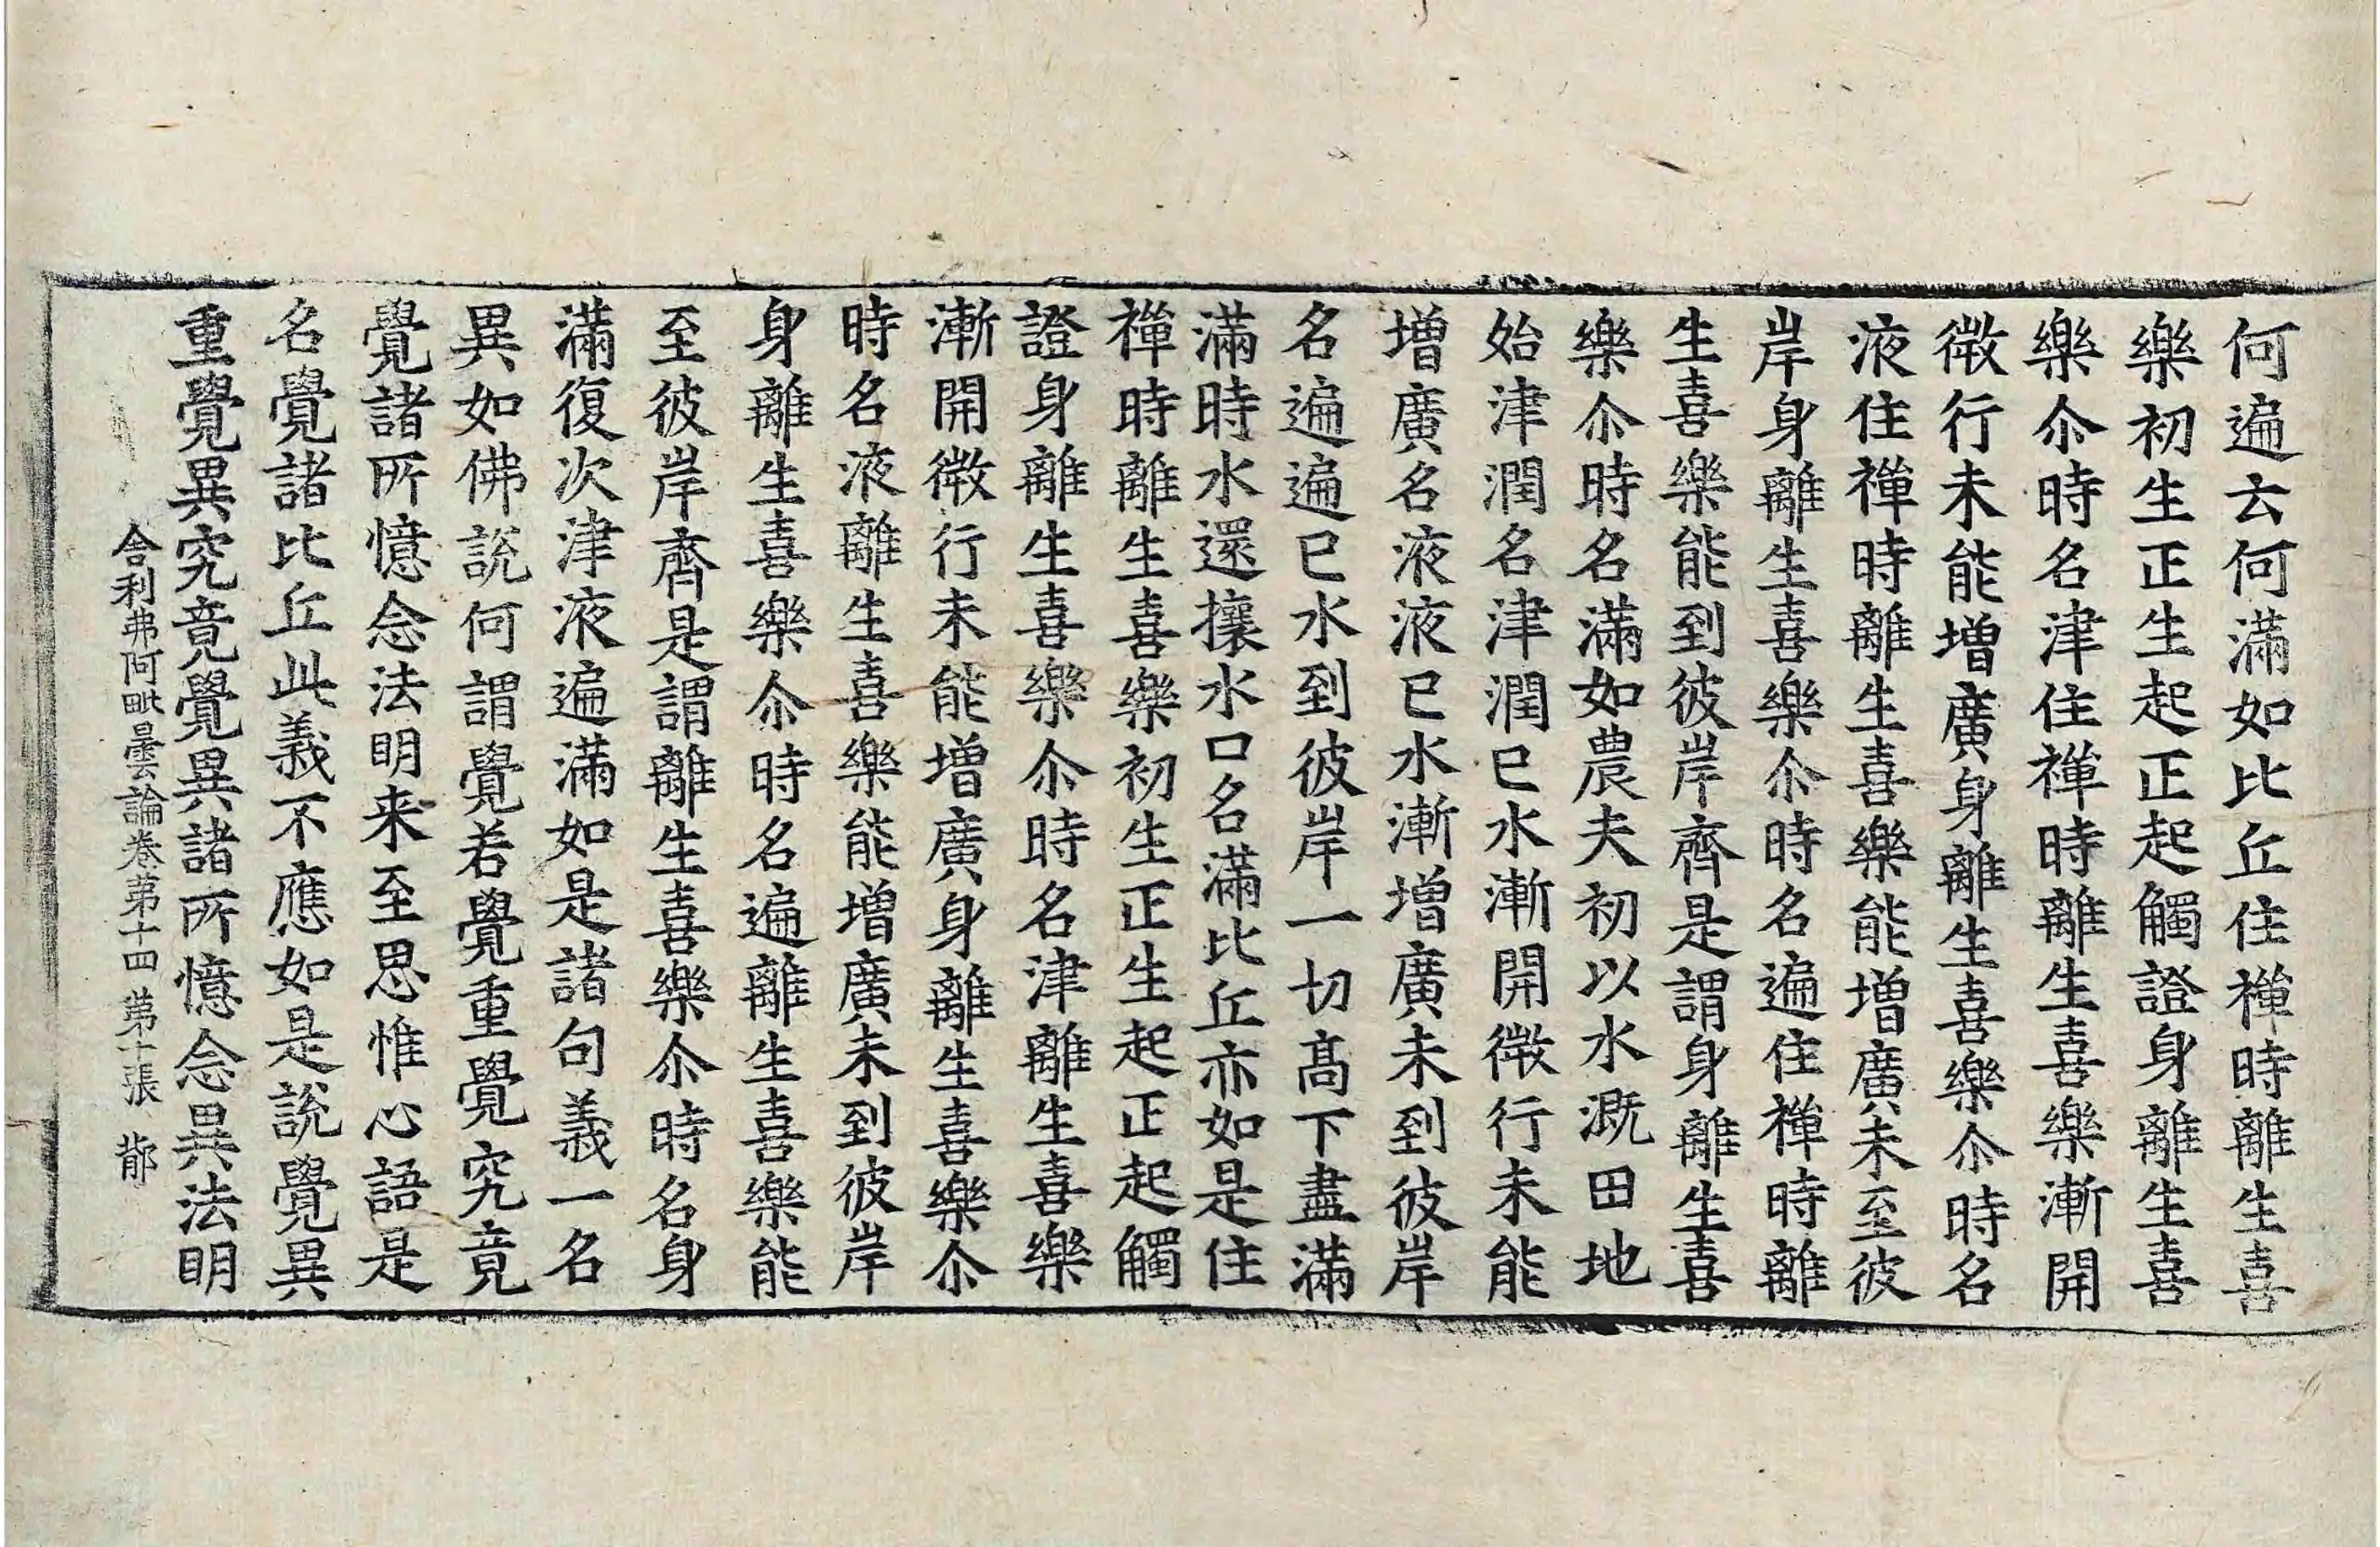 何遍去何滿如比丘住禪時離生喜
樂初生正生起正起觸證身離生喜
樂尒時名津住禪時離生喜樂漸開
微行未能增廣身離生喜樂尒時名
液住禪時離生喜樂能增廣未至彼
岸身離生喜樂尒時名遍住禪時離
生喜樂能到彼岸齊是謂身離生喜
樂尒時名滿如農夫初以水溉田地
始津潤名津潤已水漸開微行未能
增廣名液液已水漸增廣未到彼岸
名遍遍已水到彼岸一切髙下盡滿
滿時水還攘水口名滿比丘亦如是住
禪時離生喜樂初生正生起正起觸
證身離生喜樂尒時名津離生喜樂
漸開微行未能增廣身離生喜樂尒
時名液離生喜樂能增廣未到彼岸
身離生喜樂尒時名遍離生喜樂能
至彼岸齊是謂離生喜樂尒時名身
滿復次津液遍滿如是諸句義一名
異如佛說何謂覺若覺重覺究竟
覺諸所憶念法明来至思惟心語是
名覺諸比丘此義不應如是說覺異
重覺異究竟覺異諸所憶念異法明
舍利弗阿毗曇論卷苐十四 苐十張 郁